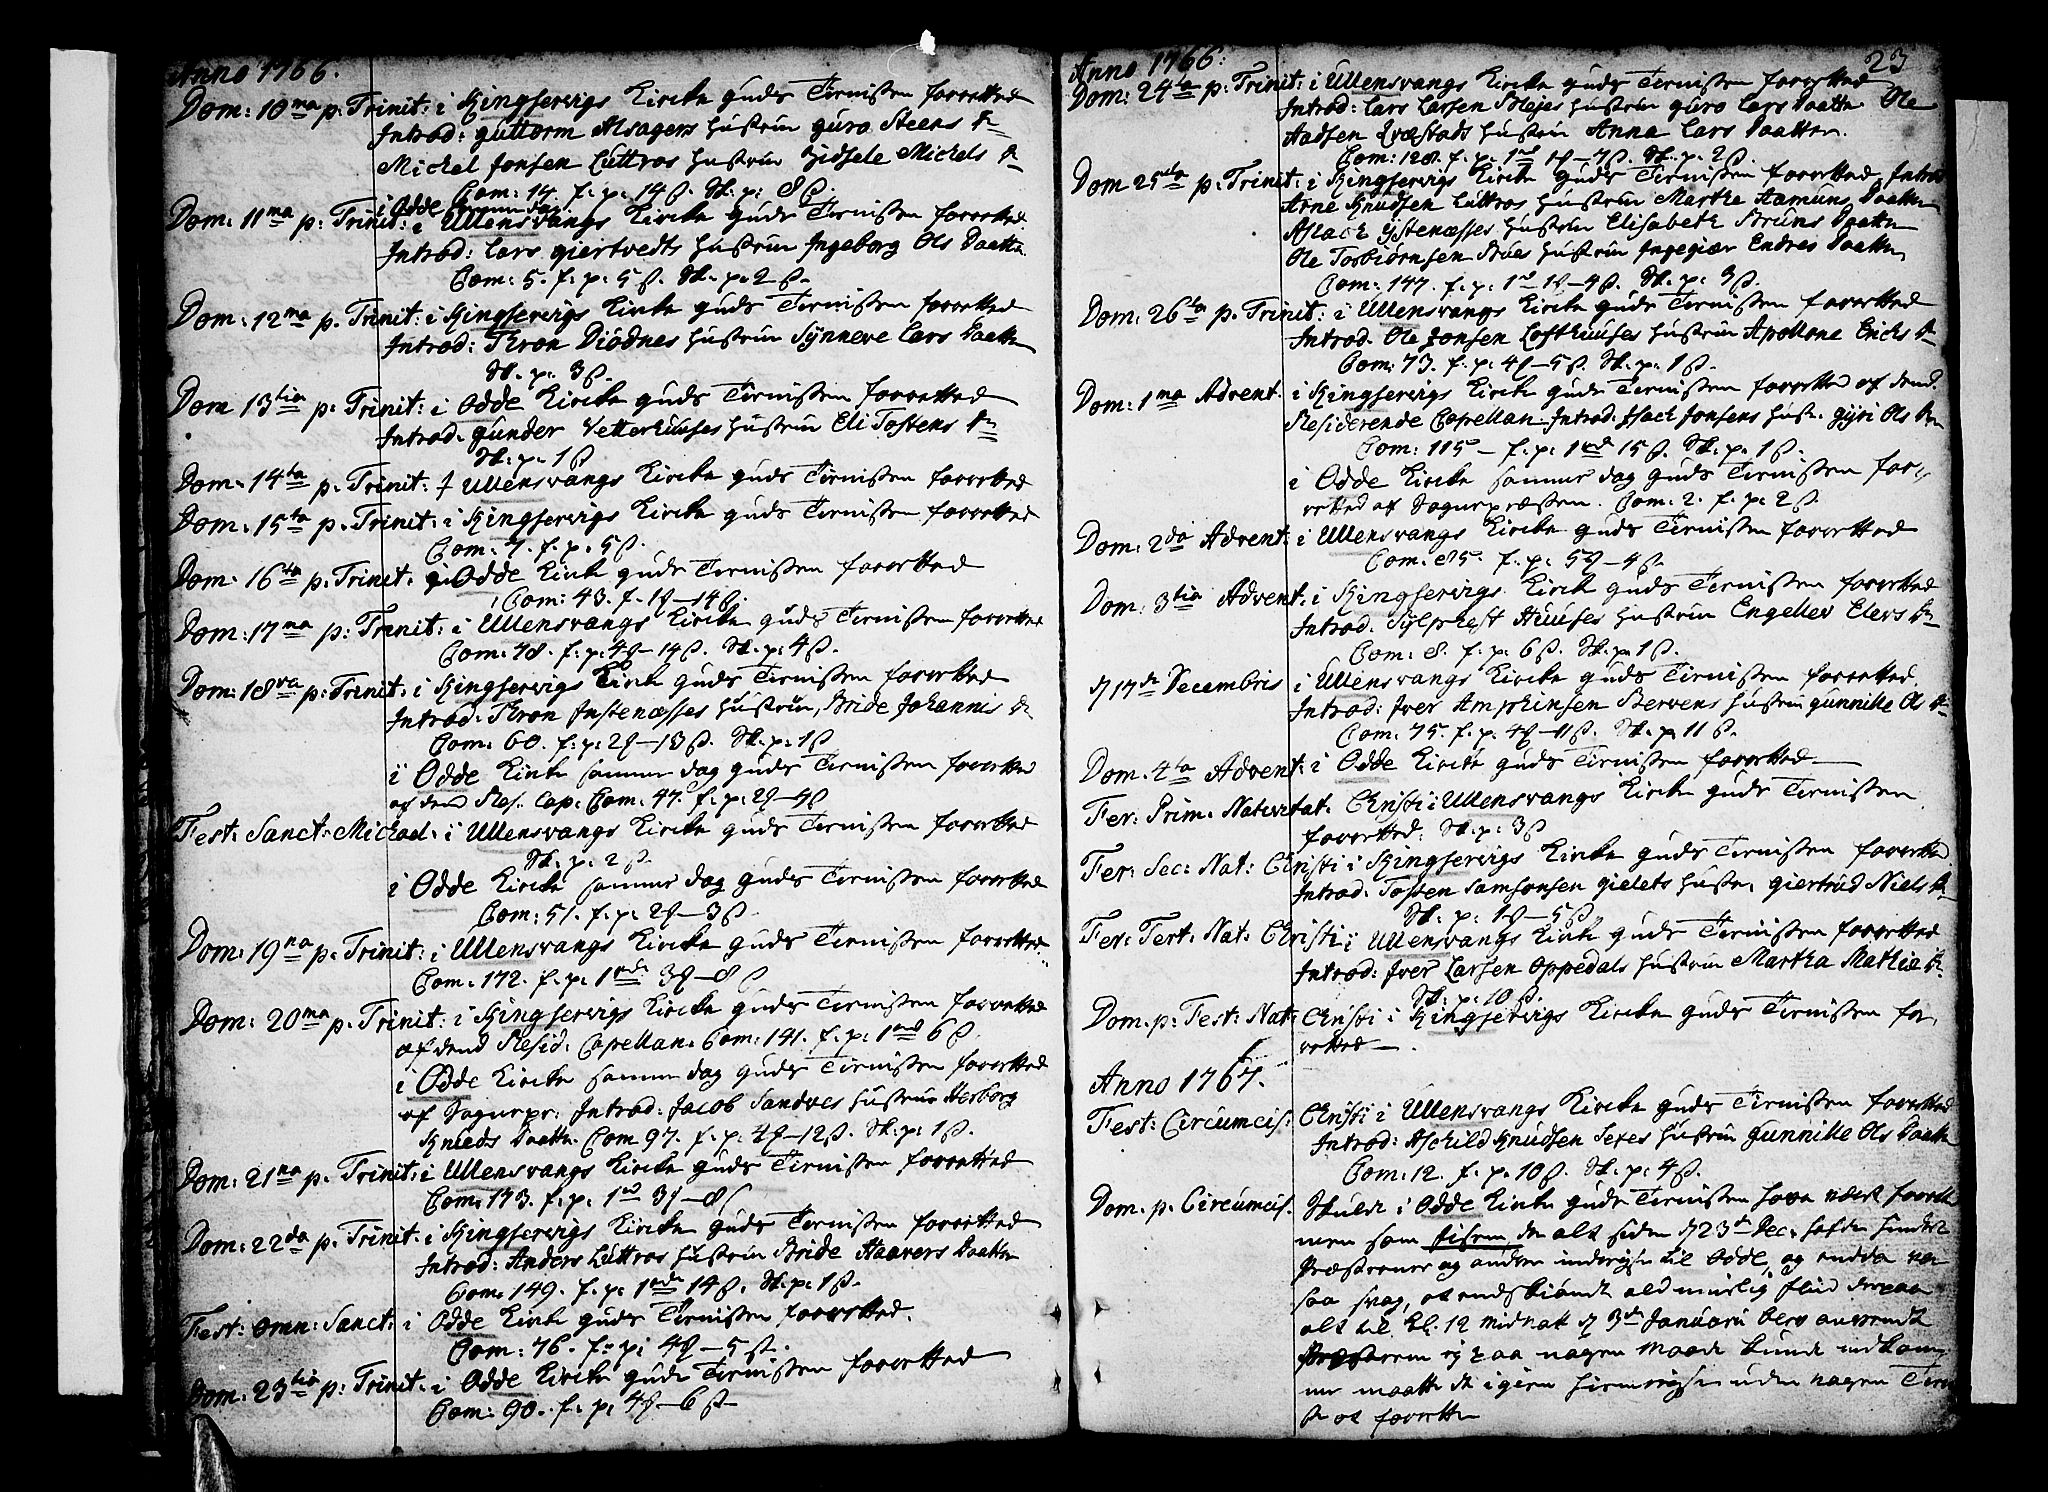 Anno 1766.
Dom: 10ma p: Trinit: i Kingservigs Kircke guds Tienisten forretted
Introd: guttorm Alsagers hustrue guro Steens D
Michel Jonsen Luttros hustrue Sidsele Michels D
Com: 14. f: p: 14 ß. Sk: p: 8 ß.
i Odde
Dom: 11ma p: Trinit: i Ullensvangs Kircke guds Tienisten forretted
Introd: Lars giertvedts hustrue Ingeborg Ols Daatter
Com: 5. f: p: 5 ß. Sk: p: 2 ß.
Dom: 12ma p. Trinit: i Kingservigs Kircke guds Tienisten forretted
Introd: Thron Diødnes hustrue Synneve Lars Daatter
Sk. p: 3 ß.
Dom 13tia p: Trinit: i Odde Kircke guds Tienisten forretted
Introd. gunder Vetterhuuses hustrue Eli Tostens D
Sk: p: 1 ß
Dom: 14ta p: Trinit: i Ullensvangs Kircke guds Tienisten forretted
Dom: 15ta p: Trinit: i Kingservigs Kircke guds Tienisten forretted
Com: 7. f: p: 5 ß.
Dom: 16ta p: Trinit: i Odde Kircke guds Tienisten forretted
Com: 43. f. 1 – 14 ß.
Dom: 17ma p: Trinit: i Ullensvangs Kircke guds Tienisten forretted
Com: 78. f: p: 4 – 14 ß. Sk: p: 4 ß.
Dom: 18va p: Trinit: i Kingservigs Kircke guds Tienisten forretted
Introd: Thron Instenæsses hustrue, Bride Johannis D
Com: 60. f: p: 2 – 13 ß. Sk: p: 1 ß
i Odde Kircke samme dag guds Tienisten forretted
af dend Res. Cap: Com: 47. f: p: 2 – 4 ß
Fest: Sanct: Michael: i Ullensvangs Kircke guds Tienisten forretted
Sk. p: 2 ß.
i Odde Kircke samme dag guds Tienisten forretted
Com: 51. f: p: 2 – 3 ß.
Dom: 19na p: Trinit: i Ullensvangs Kircke guds Tienisten forretted
Com: 172. f: p: 1 3 – 8 ß
Dom: 20ma p: Trinit: i Kingservigs Kircke guds Tienisten forretted
af dend Resid: Capellan. Com: 141. f: p: 1 6 ß.
i Odde Kircke samme dag guds Tienisten forretted
af Sognepr: Introd: Jacob Sandves hustrue Herborg
Knuds Daatter Com 97. f: p: 4 – 12 ß. Sk: p: 1 ß.
Dom: 21na p: Trinit: i Ullensvangs Kircke guds Tienisten forretted
Com: 173. f: p: 1 3 – 8 ß
Dom: 22da p: Trinit: i Kingservigs Kircke guds Tienisten forretted
Introd: Anders Luttros hustrue Bride Haavers Daatter
Com: 149. f: p: 1 14 ß. Sk: p: 1 ß.
Fest: omn: Sanct: i Odde Kircke guds Tienisten forretted.
Com: 76. f: p: 4 – 5 ß.
Dom: 23tia p: Trinit: i Odde Kircke guds Tienisten forretted
Com: 90. f: p: 4 – 6 ß
23
Anno 1766:
Dom: 24ta p: Trinit: i Ullensvangs Kircke guds Tienisten forretted
Introd: Lars Larsen Blejes hustrue guro Lars Daatter Ole
Aadsen Qvæstads hustrue Anna Lars Daatter.
Com: 128. f: p: 1 1 – 7 ß. Sk. p: 2 ß.
Dom 25ta p: Trinit: i Kingservigs Kircke guds Tienisten forretted, Introd
Arne Knudsen Luttros hustrue Martha Aamuns Daatter
Aslach Ystenæsses hustrue Elisabeth Bruns Daatter
Ole Torbiørnsen hustrue Ingegiær Endres Daatter
Com: 147. f: p: 1 1 – 4 ß. Sk. p: 3 ß.
Dom: 26ta p: Trinit: i Ullensvangs Kircke guds Tienisten forretted
Introd. Ole Jonsen Lofthuuses hustrue Apollone Erichs D
Com: 73. f: p: 4 – 5 ß. Sk: p: 1 ß.
Dom: 1ma Advent. i Kingservigs Kircke guds Tienisten forretted af dend
Residerende Capellan. Introd. Isach Jonsens hust: gyri Ols D
Com: 115 – f: p: 1 15 ß. Sk: p: 1 ß.
i Odde Kircke samme dag guds Tienisten for
retted af Sognepræsten. Com: 2. f. p: 2 ß.
Dom: 2da Advent: i Ullensvangs Kircke guds Tienisten forretted
Com: 85. f: p: 5 – 4 ß.
Dom: 3tia Advent: i Kingservigs Kircke guds Tienisten forretted
Introd. Sylphest Huuses hustrue Engellev Elevs D
Com: 8. f: p: 6 ß. Sk: p: 1 ß.
d 17de Decembris i Ullensvangs Kircke guds Tienisten forretted.
Introd: Iver Amphinsen Bervens hustrue gunnille Ols D
Com: 75. f: p: 4 – 11 ß. Sk: p 11 ß.
Dom. 4ta Advent: i Odde Kircke guds Tienisten forretted.
Fer: Prim. Nativitat: Christi i Ullensvangs Kircke guds Tienisten
forretted: Sk: p: 3 ß
Fer: Sec: Nat: Christi i Kingservigs Kircke guds Tienisten forretted
Introd: Tosten Samsonsen gielets hustr: giertrud Niels D
Sk: p: 1 – 5 ß.
Fer: Tert: Nat: Christi i Ullensvangs Kircke guds Tienisten forretted
Introd: Iver Larsen Oppedals hustrue Martha Mathie D
Sk: p: 10 ß.
Dom. p: Fest: Nat: Christi i Kingservigs Kircke guds Tienisten for
retted –
Anno 1767.
Fest: Circumcis: Christi i Ullensvangs Kircke guds Tienisten forretted
Introd: Aschild Knudsen Sexes hustrue gunnille Ols Daatter
Com: 12. f: p: 10 ß. Sk: p: 4 ß.
Dom. p. Circumcis. Skulde i Odde Kircke guds Tienisten have været forrett
men som Jisen, der alt siden d 23de Dec: hafde hindret
Præstenes og andres indreyse til Odde, og endda var
saa svag, at endskiøndt ald muelig fliid derpaa
alt til Kl. 12 midnat d 3de Januarii blev anvendt
Præsten ej paa nogen maade kunde indkom
me maatte de igien hiemreyse uden nogen Tiene
ste at forrette